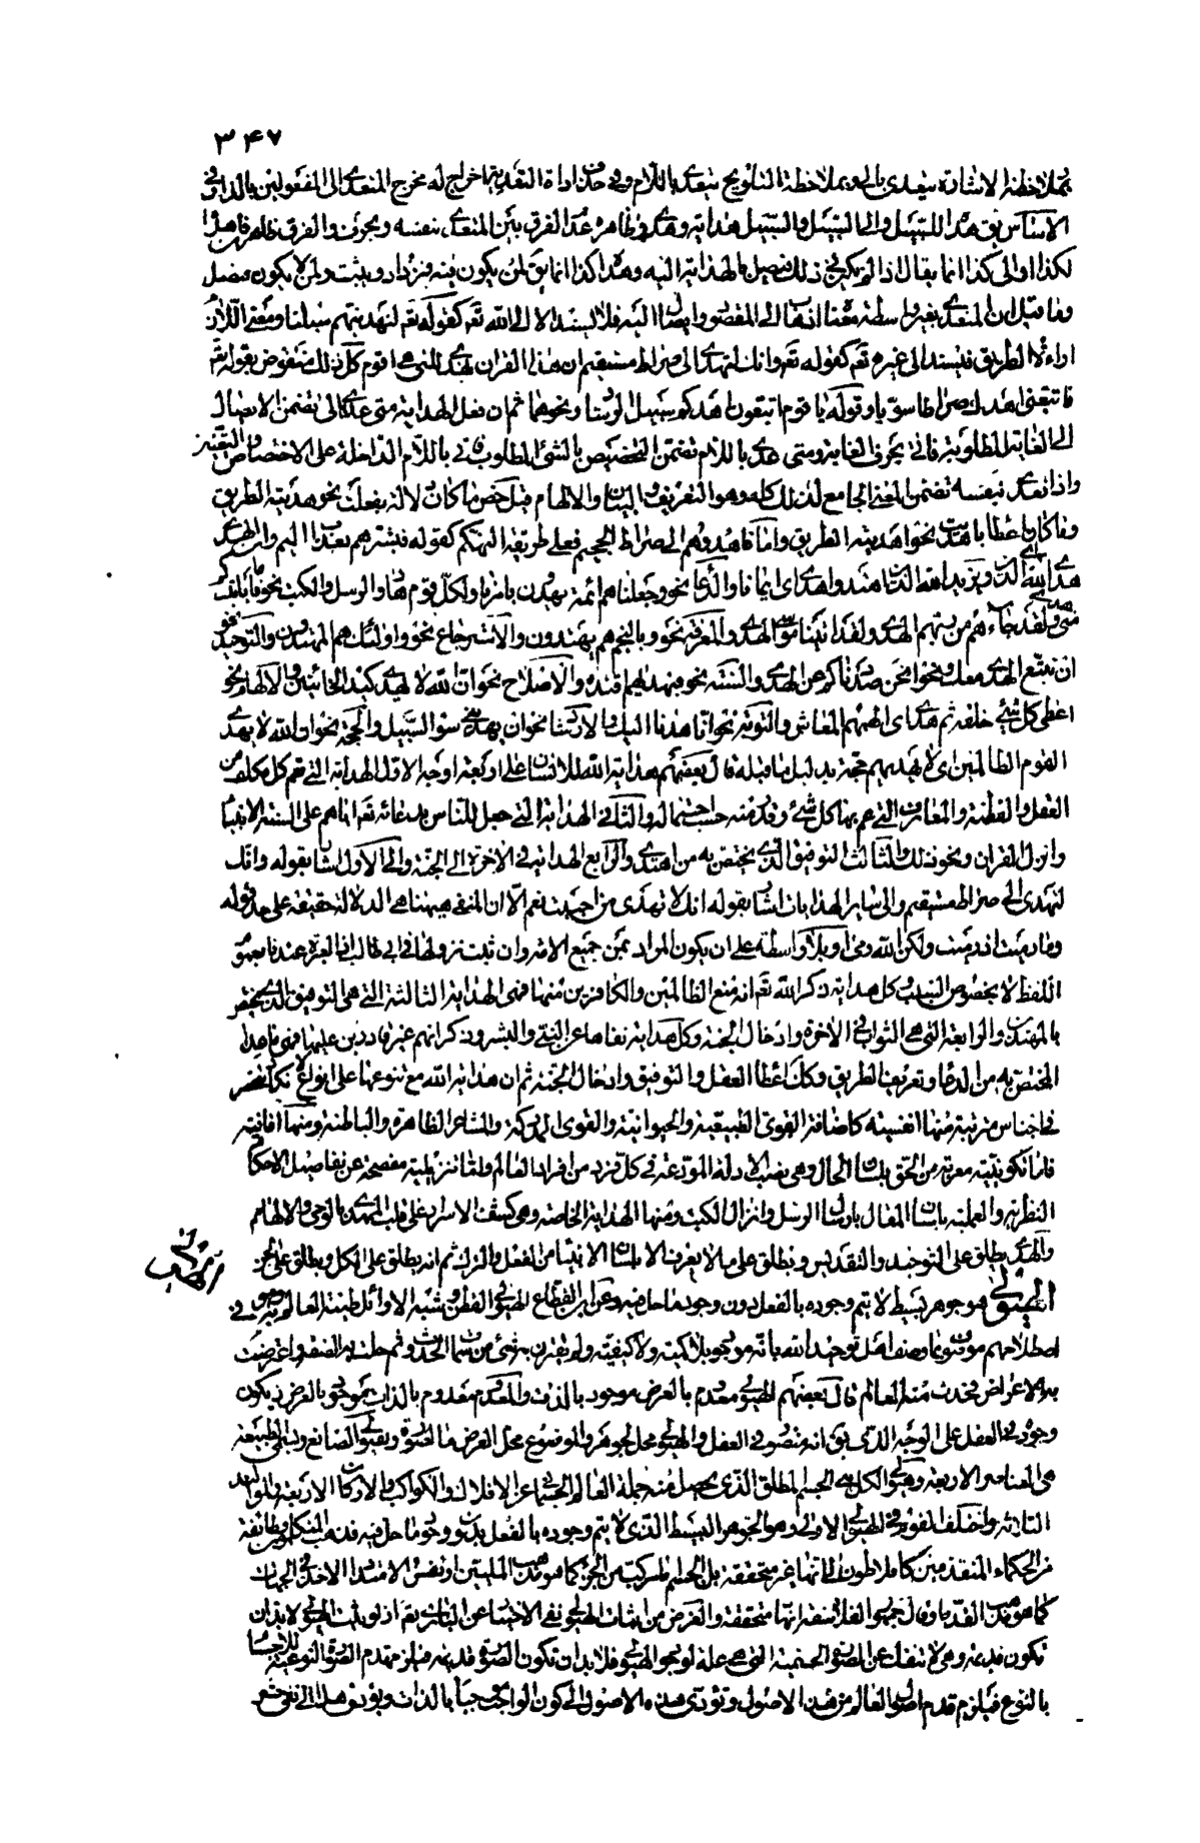 ٣٤٧
بملاحظة الاشارة يتعدى بالى وبملاحظة التلويح يتعدى باللام وفي حذف اداة التعدية اخراج له مخرج المتعدى الى المفعولين بالذات في
الاساس يق هداه للسبيل والى السبيل والسبيل هداية وهدى وظاهره عدم الفرق بين المتعدى بنفسه وبحرف والفرق ظاهر فان هداه
لكذا او الى كذا انما يقال اذا لم يكن في ذلك فيصل بالهداية اليه وهداه كذا انما يق لمن يكون فيه فيزداد ويثبت ولمن لا يكون فيصل
وما قيل ان المتعدى بغير واسطة معناه اذهاب الى المقصود وايصال اليه فلا يسند الا الى الله تعم كقوله تعم لنهدينهم سبلنا ومعنى اللازم
اراءة الطريق فيسند الى غيره تعم كقوله تعم وانك لتهدى الى صراط مستقيم ان هذا القران يهدى للتى هى اقوم كل ذلك منقوض بقوله تعم
فاتبعنى اهدك صراطا سويا وقوله يا قوم اتبعون اهدكم سبيل الرشاد ونحوهما ثم ان فعل الهداية متى عدى بالى تضمن الايصال
الى الغاية المطلوبة فاتى بحرف الغاية ومتى عدى باللام تضمن التخصيص بالشئ المطلوب فاتى باللام الدالة على الاختصاص والتعيين
واذا تعدى بنفسه تضمن المعنى الجامع لذلك كله وهو التعريف والبيان والالهام قيل خص ما كان دلالة بفعلت نحو هديته الطريق
وما كان اعطاء باهديت نحو اهديته الطريق واما فاهدوهم الى صراط الجحيم فعلى طريقة التهكم كقوله فبشرهم بعذاب اليم والهدى
هدى الله الذى ويزيد الله الذين اهتدوا هدى اى ايمانا والدعاء نحو وجعلناهم ائمة يهدون بامرنا ولكل قوم هاد والرسل والكتب نحو فاما ياتينكم
منى هدى ولقد جاءهم من ربهم الهدى ولقد اتينا موسى الهدى والمعرفة نحو وبالنجم هم يهتدون والاسترجاع نحو واولئك هم المهتدون والتوحيد نحو
ان نتبع الهدى معك ونحو انحن صددناكم عن الهدى والسنة نحو فبهديهم اقتده والاصلاح نحو ان الله لا يهدى كيد الخائنين والالهام نحو
اعطى كل شئ خلقه ثم هدى اى الهمهم المعاش والتوبة نحو انا هدنا اليك والارشاد نحو ان يهدينى سواء السبيل والحجة نحو ان الله لا يهدى
القوم الظالمين اى لا يهديهم حجة بدليل ما قبله قال بعضهم هداية الله للانسان على اربعة اوجه الاول الهداية التى تعم كل مكلف من
العقل والفطنة والمعارف التى عم بها كل شئ وقدر منه حسب احتماله والثانى الهداية التى جعل للناس بدعائه تعم اياهم على السنة الانبياء
وانزل القران ونحو ذلك والثالث التوفيق الذى يختص به من اهتدى والرابع الهداية فى الاخرة الى الجنة والى الاول اشار بقوله وانك
لتهدى الى صراط مستقيم والى سائر الهدايات اشار بقوله انك لا تهدى من احببت نعم الا ان المنفى ههنا هى الدلالة حقيقة على حد قوله
وما رميت اذ رميت ولكن الله رمى او بلا واسطة على ان يكون المراد بمن جميع الامة وان ثبت نزولها فى ابى طالب اذ العبرة عندنا بعموم
اللفظ لا بخصوص السبب وكل هداية ذكر الله تعم انه منع الظالمين والكافرين منها فهى الهداية الثالثة التى هى التوفيق الذى يختص
بالمهتدين والرابعة التى هى الثواب فى الاخرة وادخال الجنة وكل هداية نفاها عن النبى والبشر وذكر انهم غير قادرين عليها فهى ما عدا
المختص به من الدعاء وتعريف الطريق وكذا اعطاء العقل والتوفيق وادخال الجنة ثم ان هداية الله مع تنوعها على انواع لا تكاد تنحصر
فى اجناس مترتبة منها انفسية كاضافة القوى الطبيعية والحيوانية والقوى المدركة والمشاعر الظاهرة والباطنة ومنها افاقية
فاما تكوينية معربة من الحق بلسان الحال وهى نصب الادلة المودعة فى كل فرد من افراد العالم واما تنزيلية مفصحة عن تفاصيل الاحكام
النظرية والعملية بلسان المقال بارسال الرسل وانزال الكتب ومنها الهداية الخاصة وهى كشف الاسرار على قلب المهدى بالوحى والالهام
والهدى يطلق على التوحيد والتقديس ويطلق على ما لا يعرف الا بلسان الانبياء من الفعل والترك ثم انه يطلق على الكل ويطلق على الجزء
الهيولى هو جوهر بسيط لا يتم وجوده بالفعل دون وجود ما حل فيه وعن ابن القطاع الهيولى القطن وشبه الاوائل طينة العالم به وهو فى
اصطلاحهم موصوف بما وصف اهل توحيد الله بانه موجود بلا كمية ولا كيفية ولم يقترن به شئ من سمات الحدث ثم حلت به الصفة واعترضت
به الاعراض فحدث منه العالم قال بعضهم الهيولى معدوم بالعرض موجود بالذات والمعدوم معدوم بالذات موجود بالعرض اذ يكون
وجوده فى العقل على الوجه الذى يق انه متصور فى العقل والهيولى محل لجوهر والموضوع محل لعرض ما الصورة وهيولى الصناعة وهيولى الطبيعة
هى العناصر الاربعة وهيولى الكل هى الجسم المطلق الذى يحصل منه جملة العالم الجسمانى اعنى الافلاك والكواكب والاركان الاربعة والمواليد
الثلاثة واختلف القوم فى الهيولى الاولى وهو الجوهر البسيط الذى لا يتم وجوده بالفعل بدون وجود ما حل فيه فذهب المتكلمون وطائفة
من الحكماء المتقدمين كافلاطون الى انها غير متحققة بل الجسم اما مركب من الجزء كما هو مذهب المليين او نفس الامتداد الاخذ فى الجهات
كما هو مذهب القدماء وقال جمهور الفلاسفة انها متحققة والغرض من اثبات الهيولى نفى الاختيار عن البارى تعم اذ لو ثبت الهيولى لا بد ان
تكون قديمة وهى لا تنفك عن الصورة الجسمية التى هى علة لوجود الهيولى فلا بد ان تكون الصورة قديمة فيلزم قدم الصورة النوعية للاجسام
بالنوع فيلزم قدم اصول العالم من هذه الاصول وتؤدى هذه الاصول الى كون الواجب موجبا بالذات ويؤدى هذا الى نفى حشر